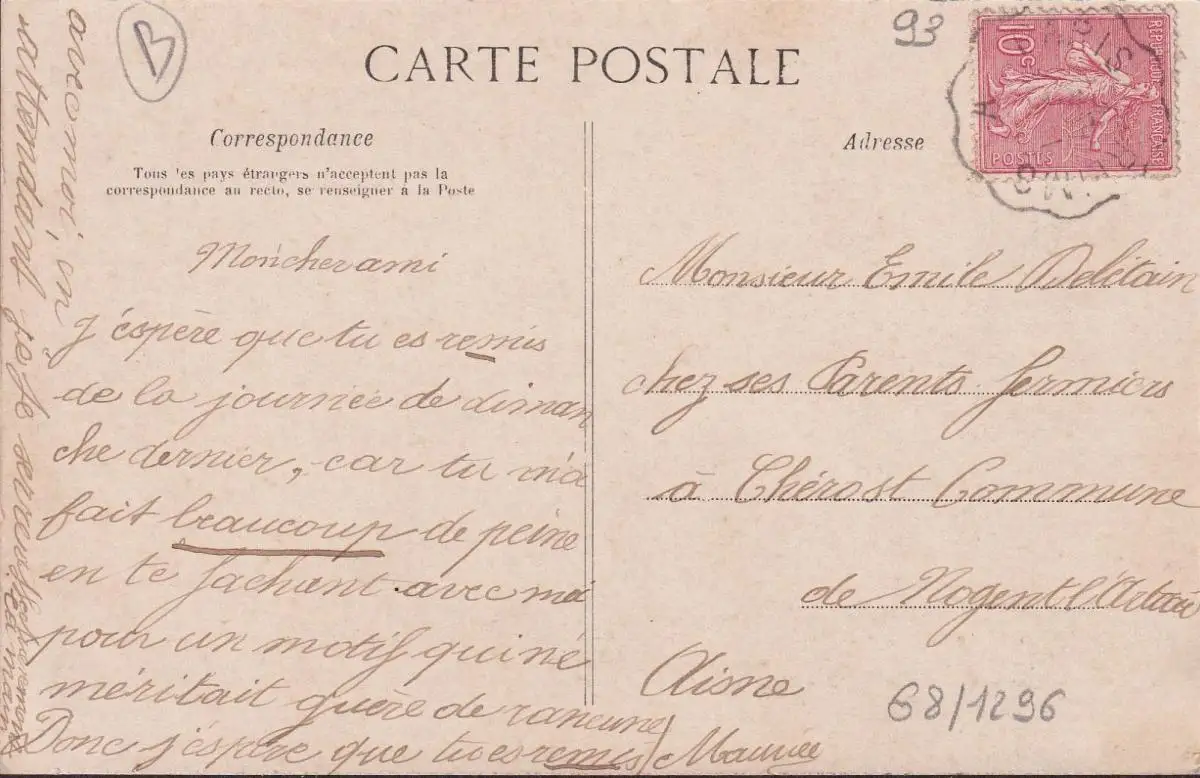 93
B
CARTE POSTALE
Correspondance
Tous les pays étrangers n'acceptent pas la
correspondance au recto, se renseigner à la Poste
Adresse
10c
REPUBLIQUE FRANÇAISE
POSTES
Mon cher ami
J'éspère que tu es remis
de la journée de diman
che dernier, car tu m'a
fait beaucoup de peine
en te fachant avec moi
pour un motif qui ne
méritait guère de rancune
Donc j'éspère que tu es remis
avec moi, en
attendant je te serre
la main
Maurice
Monsieur Emile Delétain
chez ses Parents fermiers
à Thérost Commune
de Nogent l'Artau
Aisne
68/1296